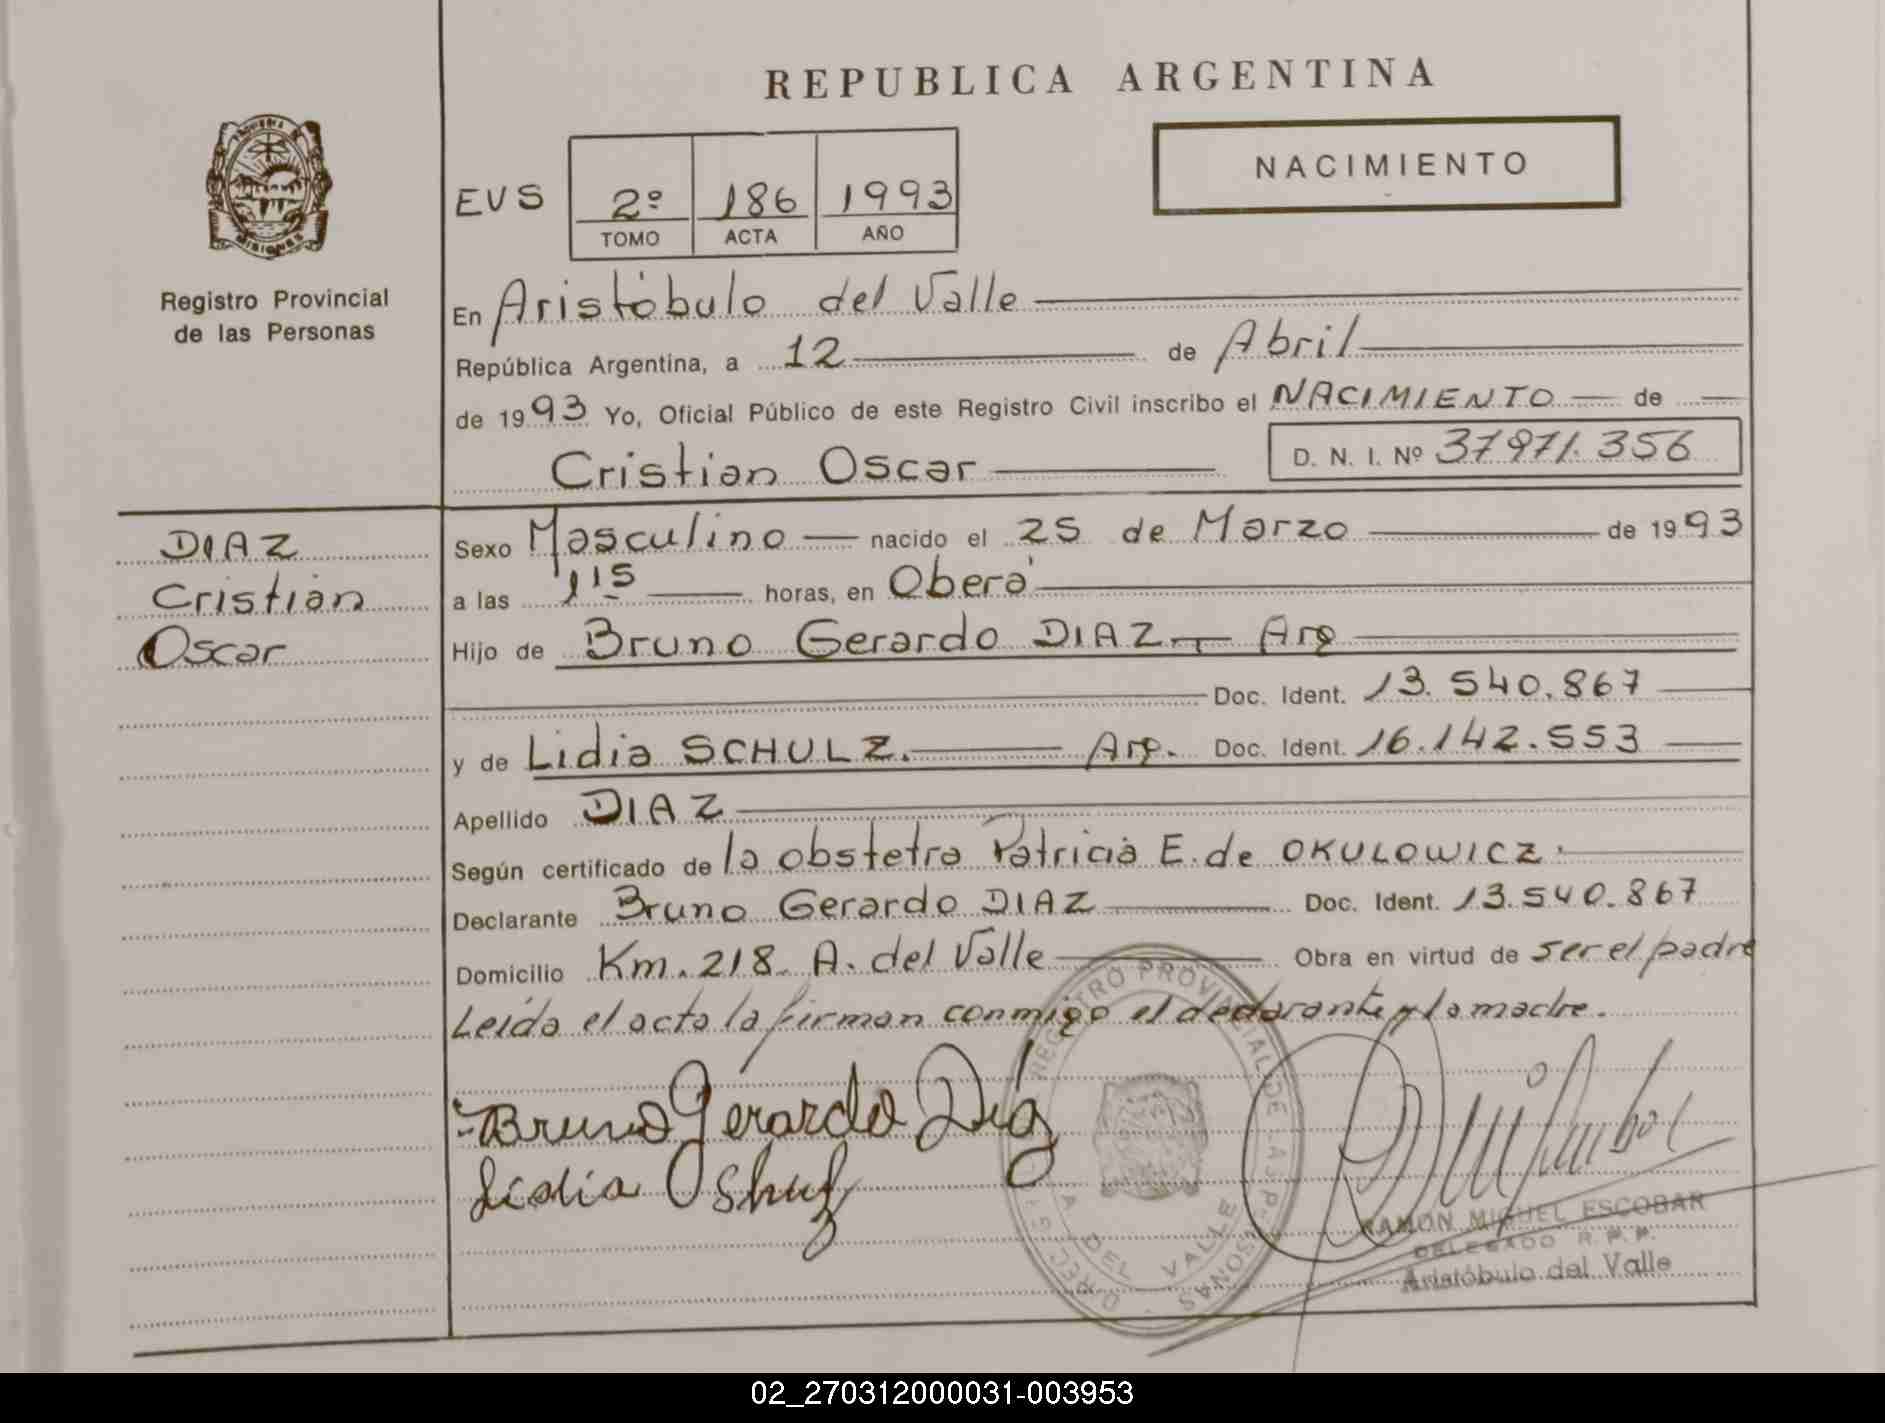 REPUBLICA ARGENTINA
NACIMIENTO
EVS 2º 186 1993
TOMO ACTA AÑO
PROVINCIA DE
MISIONES
Registro Provincial
de las Personas
En Aristóbulo del Valle
República Argentina, a 12 de Abril
de 1993 Yo, Oficial Público de este Registro Civil inscribo el NACIMIENTO de
Cristian Oscar D. N. I. Nº 37971.356
DIAZ
Cristian
Oscar
Sexo Masculino nacido el 25 de Marzo de 1993
a las 1 15 horas, en Oberá
Hijo de Bruno Gerardo DIAZ Arg
Doc. Ident. 13.540.867
y de Lidia SCHULZ. Arg. Doc. Ident. 16.142.553
Apellido DIAZ
Según certificado de la obstetra Patricia E. de OKULOWICZ.
Declarante Bruno Gerardo DIAZ Doc. Ident. 13.540.867
Domicilio Km. 218 A. del Valle Obra en virtud de ser el padre
Leída el acta la firman conmigo el declarante y la madre.
Bruno Gerardo Diaz
Lidia Oshulz
REGISTRO PROVINCIAL DE LAS PERSONAS
A. DEL VALLE
RAMON MIGUEL ESCOBAR
DELEGADO R. P. P.
Aristóbulo del Valle
02_270312000031-003953